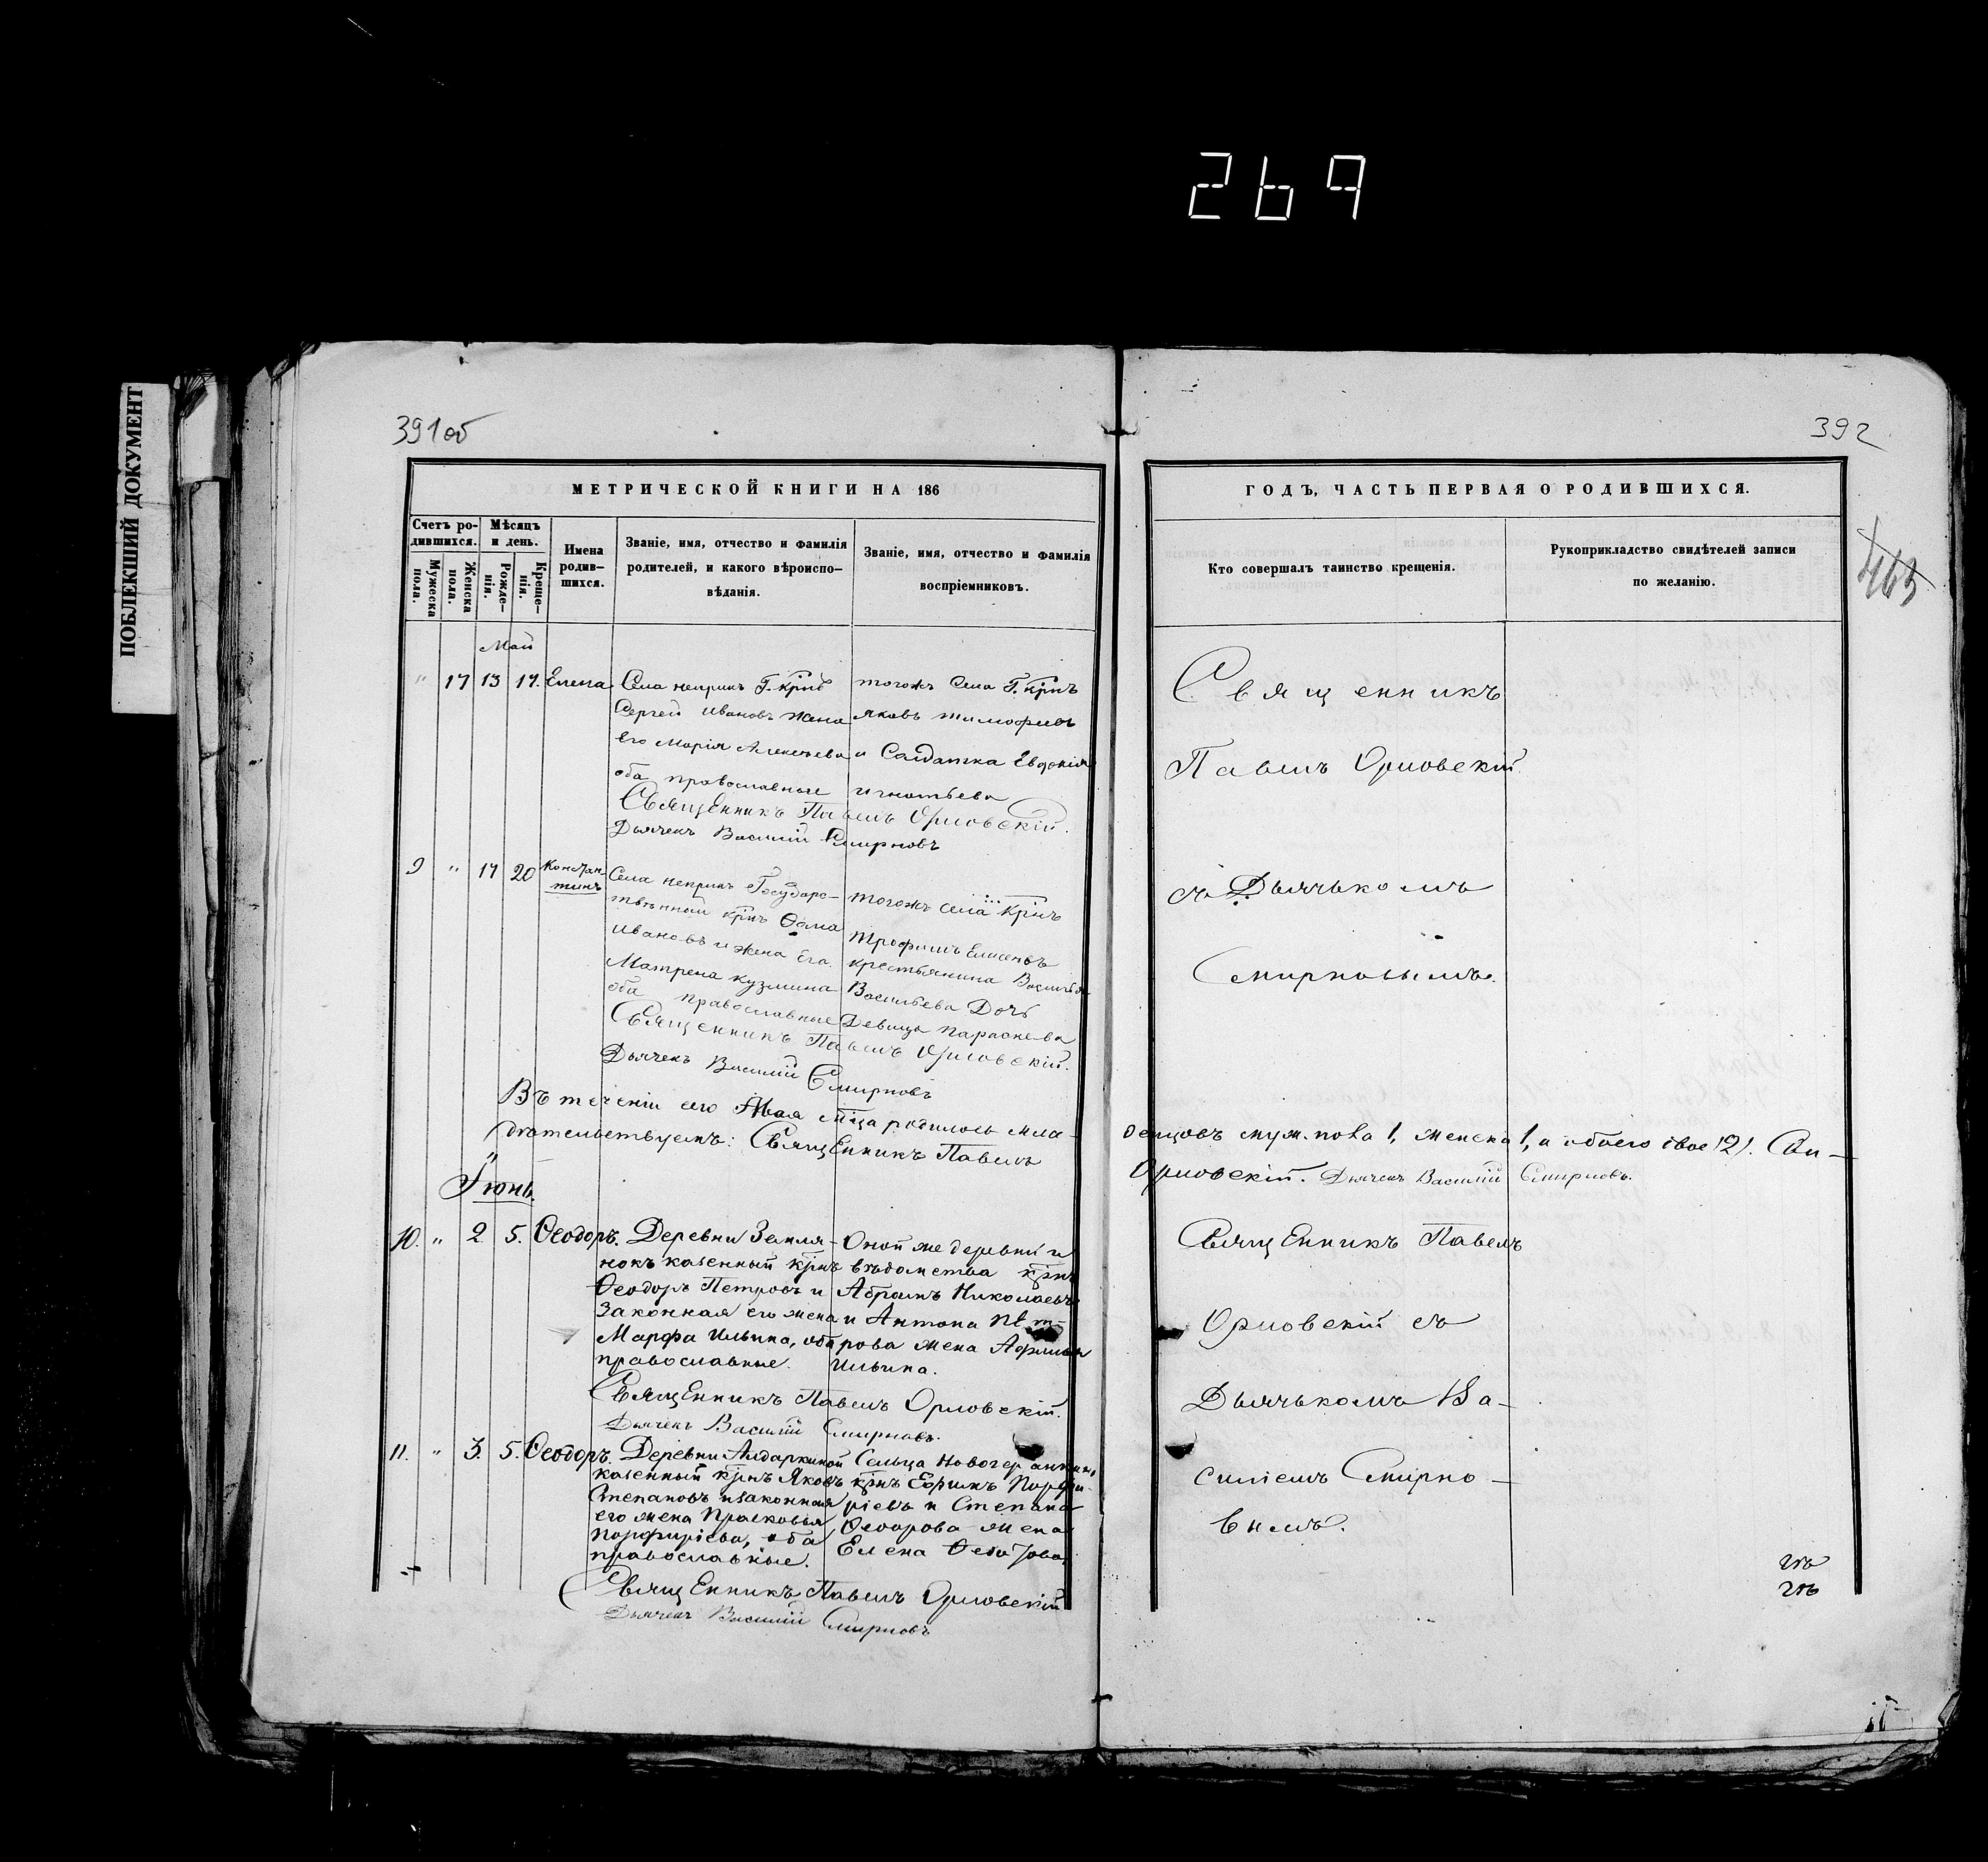 269
ПОБЛЕКШИЙ ДОКУМЕНТ
391об
МЕТРИЧЕСКОЙ КНИГИ НА 186
Счетъ ро-
дившихся.
Мѣсяцъ
и день.
Мужеска
пола.
Женска
пола.
Рожде-
нія.
Креще-
нія.
Имена
родив-
шихся.
Званіе, имя, отчество и фамилія
родителей, и какого вѣроиспо-
вѣданія.
Званіе, имя, отчество и фамилія
воспріемниковъ.
Май
" 17 13 17. Елена
Села неприкъ Г. крнъ
Сергей Ивановъ жена
его Марія Алексѣева
оба православные
тогожъ Села Г. крнъ
яковъ тимофѣевъ
и Салдатка Евдокія
игнатьева
Священникъ Павелъ Орловскій.
Дьячекъ Василій Смирновъ
9 " 17 20 Констан-
тинъ
Села неприкъ Государс-
твенный крнъ Ѳома
Ивановъ и жена Его
Матрена кузмина
оба православные
тогожъ села крнъ
трофимъ Елисеевъ
крестьянина
Васильева Дочь
Девица параскева
Священникъ Павелъ Орловскій.
Дьячекъ Василій Смирновъ
Въ теченіи сего Мая мца родилось мла-
дѣтельствуемъ: Священникъ Павелъ
Іюнь.
10. " 2 5. Ѳеодоръ.
Деревни Земля-
нокъ казенный крнъ
Ѳеодоръ Петровъ и
Законная его жена
Марфа Ильина, оба
православные.
Оной же деревни и
вѣдомства крнъ
Абрамъ Николаевъ
и Антона Пет-
рова жена
Ильина.
Священникъ Павелъ Орловскій.
Дьячекъ Василій Смирновъ.
11. " 3. 5. Ѳеодоръ.
Деревни Андаркиной
казенный крнъ Яковъ
Степановъ и законная
его жена Прасковья
Порфирьева, оба
православные.
Сельца
крнъ Ефимъ Порфи-
рьевъ и Степана
Ѳедорова жена
Елена
Священникъ Павелъ Орловскій
Дьячекъ Василій Смирновъ
392
463
ГОДЪ, ЧАСТЬ ПЕРВАЯ О РОДИВШИХСЯ.
Кто совершалъ таинство крещенія.
Рукоприкладство свидѣтелей записи
по желанію.
Священникъ
Павелъ Орловскій
съ Дьячькомъ
Смирновымъ.
денцовъ муж. пола 1, женска 1, а обоего двое /2/. Сви-
Орловскій. Дьячекъ Василій Смирновъ.
Священникъ Павелъ
Орловскій съ
Дьячькомъ Ва-
силіемъ Смирно-
вымъ.